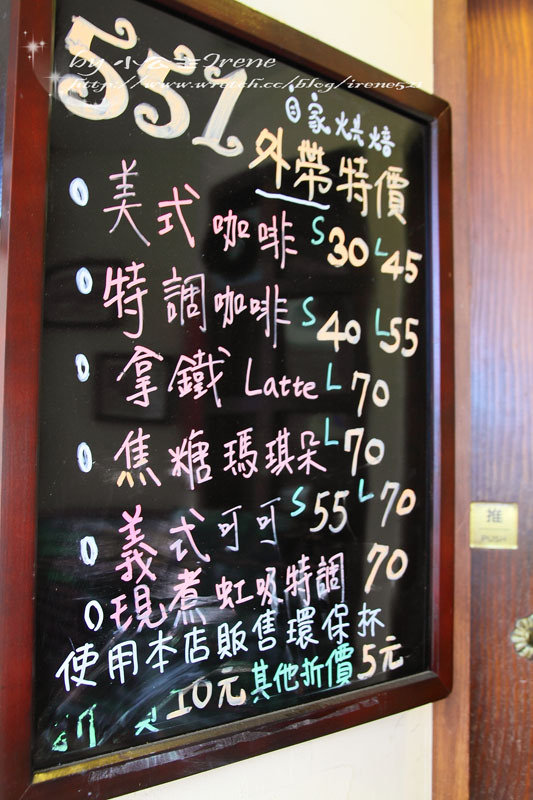 by 小公主Irene
http://www.wretch.cc/blog/irene521
551
自家烘焙
外帶特價
美式咖啡 S 30 L 45
特調咖啡 S 40 L 55
拿鐵 Latte L 70
焦糖瑪琪朵 L 70
義式可可 S 55 L 70
現煮虹吸特調 70
使用本店販售環保杯
10元 其他折價5元
推
PUSH